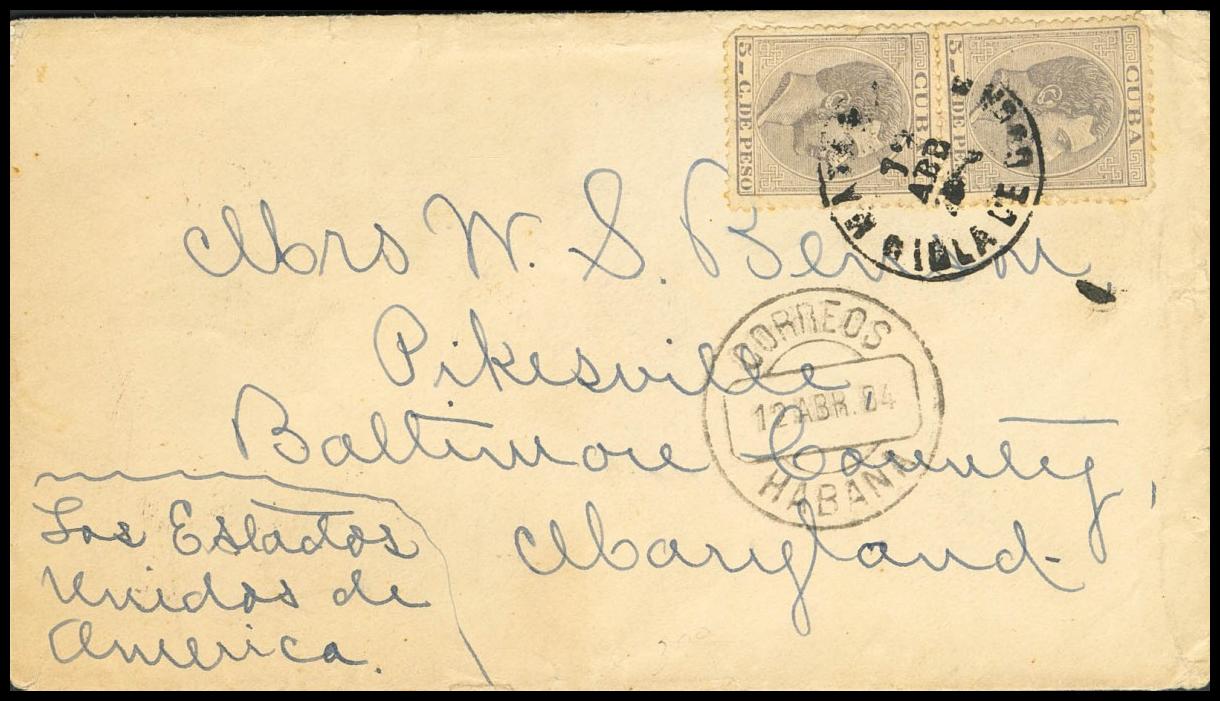 5_C.DE PESO
CUBA
5_
DE PE
CUBA
ABR
ISLA DE
Mrs W. S.
Pikesville
Baltimore County,
Maryland-
CORREOS
12 ABR. 84
HABANA
Los Estados
Unidos de
America.